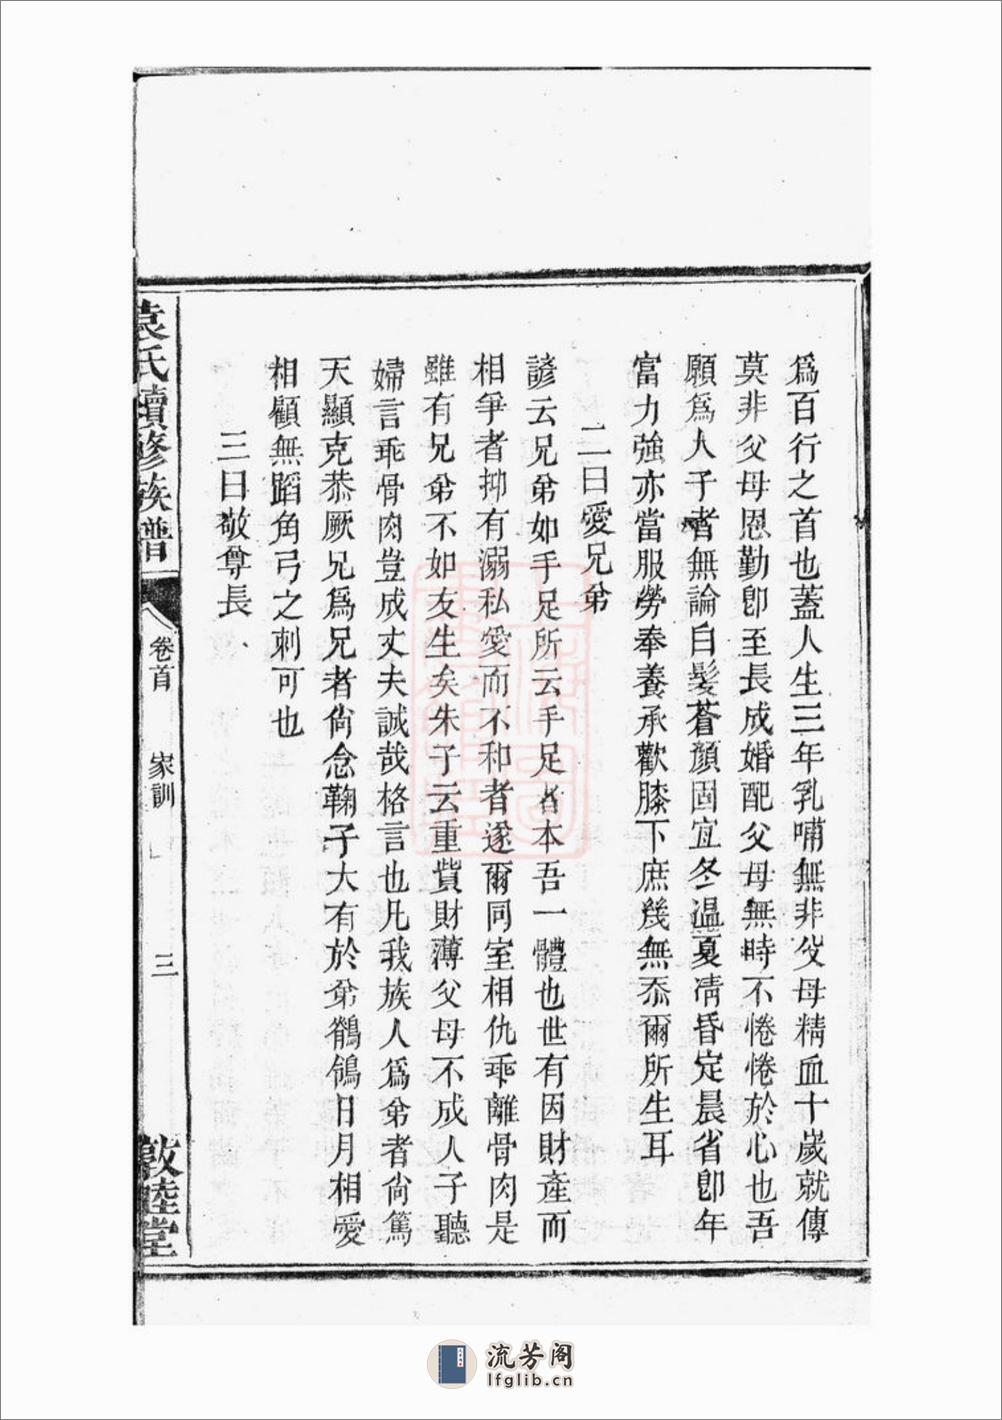 爲百行之首也蓋人生三年乳哺無非父母精血十歲就傳
莫非父母恩勤卽至長成婚配父母無時不惓惓於心也吾
願爲人子者無論白髮蒼顏固宜冬溫夏凊昏定晨省卽年
富力強亦當服勞奉養承歡膝下庶幾無忝爾所生耳
二曰愛兄弟
諺云兄弟如手足所云手足者本吾一體也世有因財產而
相爭者抑有溺私愛而不和者遂爾同室相仇乖離骨肉是
雖有兄弟不如友生矣朱子云重貲財薄父母不成人子聽
婦言乖骨肉豈成丈夫誠哉格言也凡我族人爲弟者尙篤
天顯克恭厥兄爲兄者尙念鞠子大有於弟鶺鴒日月相愛
相顧無蹈角弓之刺可也
三曰敬尊長
袁氏續修族譜
卷首
家訓
三
敦睦堂
流芳阁
lfglib.cn